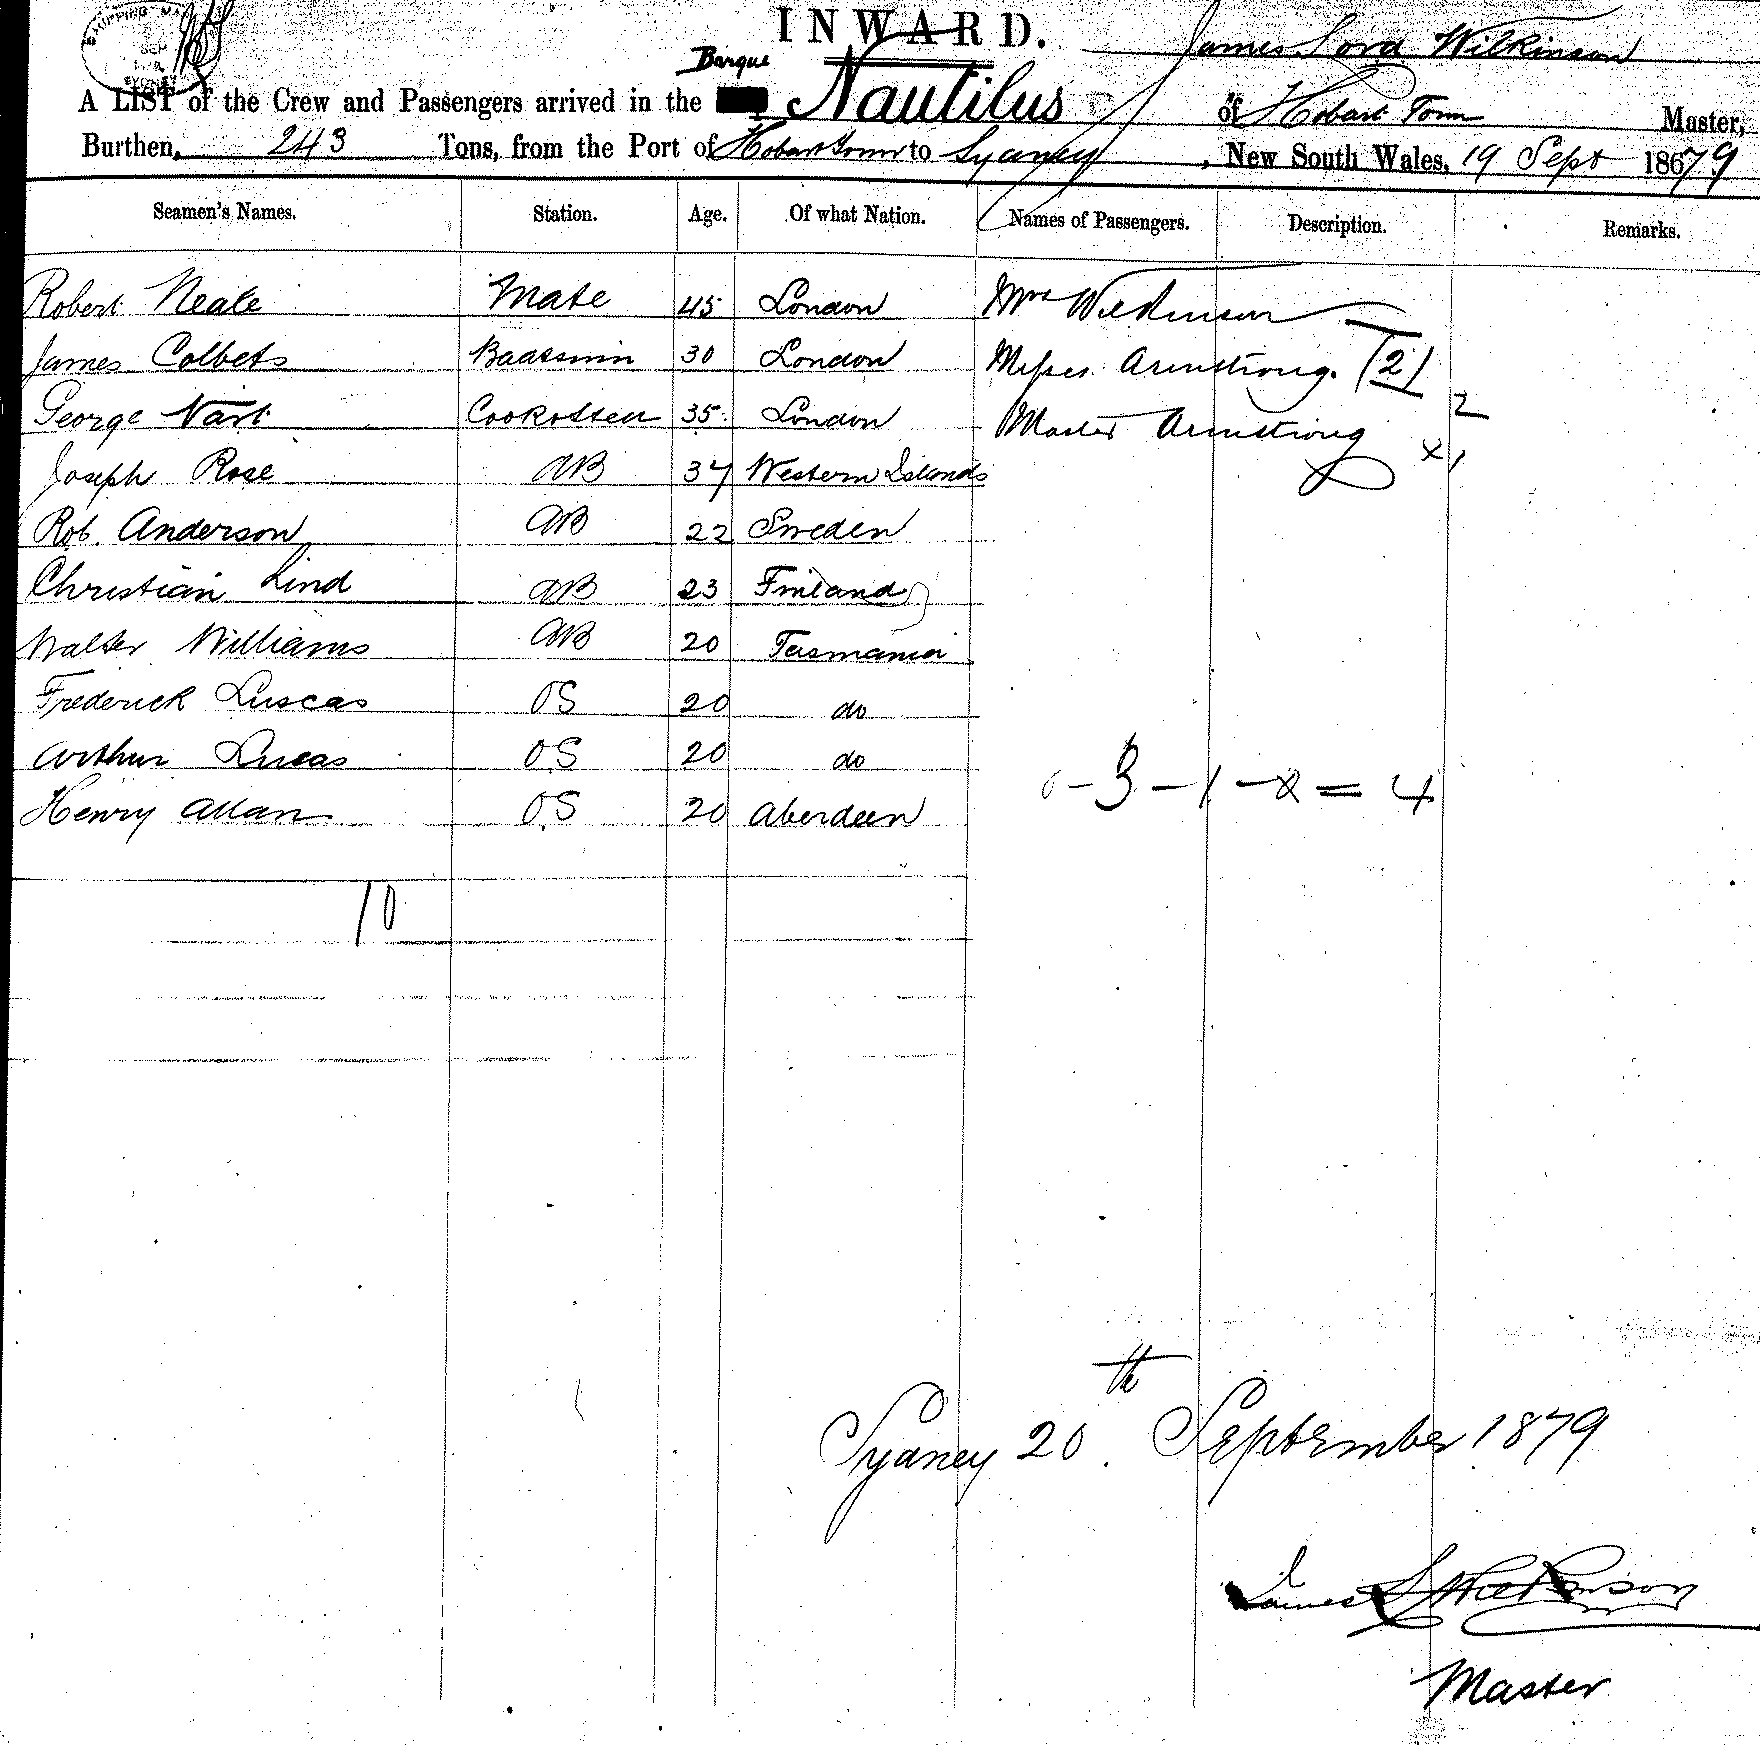 SHIPPING MA
SEP
SYDNEY
INWARD.
James Lord Wilkinson
Barque
A LIST of the Crew and Passengers arrived in the Nautilus of Hobart Town Master,
Burthen, 243 Tons, from the Port of Hobart Town to Sydney, New South Wales, 19 Sept 1879
Seamen's Names. Station. Age. Of what Nation. Names of Passengers. Description. Remarks.
Robert Neale Mate 45 London Mrs Wilkinson
James Colbets 30 London Misses Armstrong. (2)
George 35 London Master Armstrong 2
Joseph Rose AB 37 Western Islands x 1
Rob. Anderson AB 22 Sweden
Christian Lind AB 23 Finland
Walter Williams AB 20 Tasmania
Frederick Luscas OS 20 do
Arthur Lucas OS 20 do
- 3 - 1 - = 4
Henry Allan OS 20 Aberdeen
10
Sydney 20th September 1879
James L Wilkinson
Master